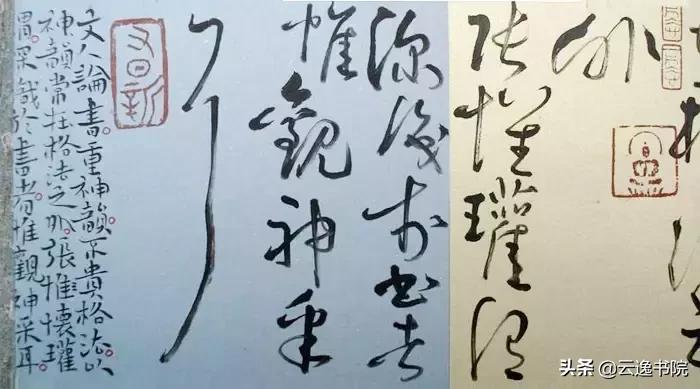 外
張懷瓘謂
深識於書者
惟觀神采
耳
又日新
文人論書重神韻不貴格法以
神韻常在格法之外張惟懷瓘
謂深識於書者惟觀神采耳
头条 @云逸书院